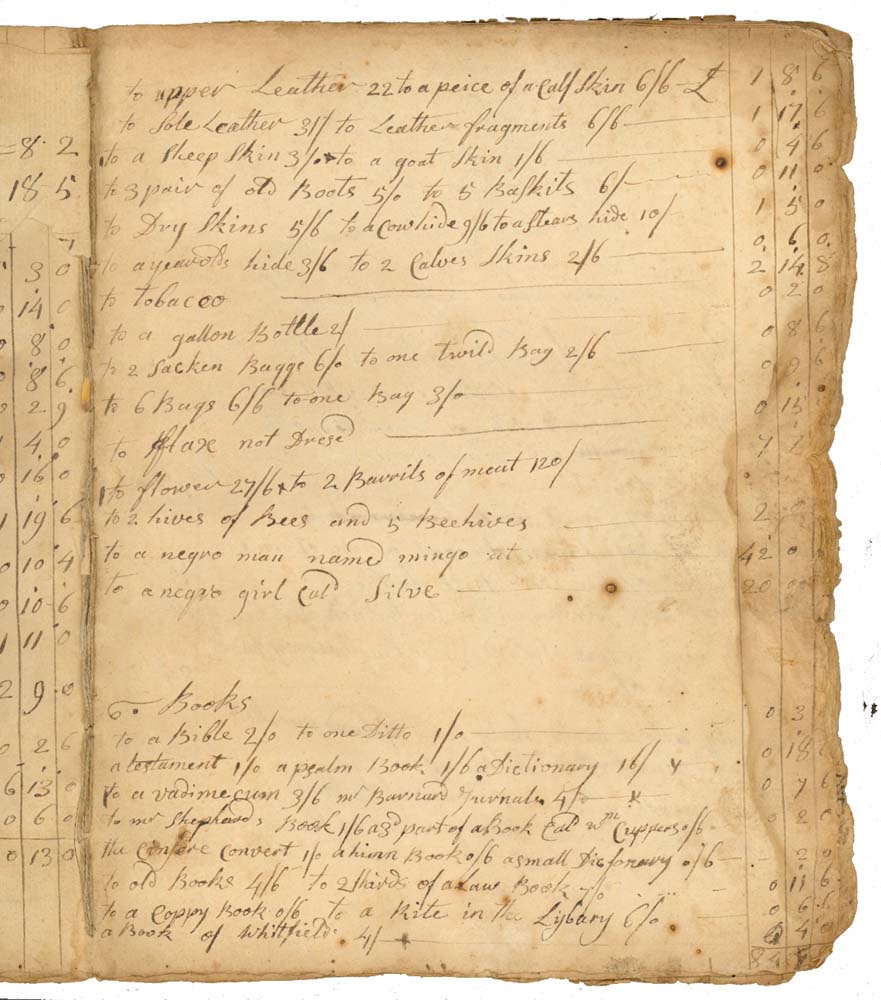 =8 2
18 5
7
3 0
14 0
8 0
8 6
2 9
4 0
16 0
19 6
0 10 4
0 10 6
1 11 0
2 9 0
0 2 6
6 13 0
0 6 0
0 13 0
to upper Leather 22 to a peice of a Calf Skin 6/6 £ 1 8 6
to Sole Leather 31/ to Leather fragments 6/6 1 17 6
to a Sheep Skin 3/ to a goat Skin 1/6 0 4 6
to 3 pair of old Boots 5/0 to 5 Baskits 6/ 0 11 0
to Dry Skins 5/6 to a Cowhide 9/6 to a stears hide 10/ 1 5 0
to a yearolds hide 3/6 to 2 Calves Skins 2/6 0 6 0
to tobacco 2 14 8
to a gallon Bottle 2/ 0 2 0
to 2 Sacken Baggs 6/0 to one twild Bag 2/6 0 8 6
to 6 Bags 6/6 to one Bag 3/0 0 9 6
to fflax not Dresd 0 15
to flower 27/6 to 2 Barrils of meat 120/ 7 7
to 2 hives of Bees and 5 Beehives 2 0
to a negro man named mingo at 42 0
to a negro girl Cald Silve 20 0
Books
to a Bible 2/0 to one Ditto 1/0 0 3
a testament 1/0 a psalm Book 1/6 a Dictionary 16/ x 0 18 6
to a vadimecum 3/6 mr Barnard Jurnals 4/ x 0 7 6
to mr Shephards Book 1/6 a 3d part of a Book Cald wm Cuppers 0/6 0 2 0
the Convert 1/0 a himn Book 0/6 a small Dictionary 0/6 2 0
to old Books 4/6 to 2 thirds of a Law Book 7/0 0 11 6
to a Coppy Book 0/6 to a Rite in the Lybary 6/0 0 6 6
a Book of Whitfields 4/ 0 4 0